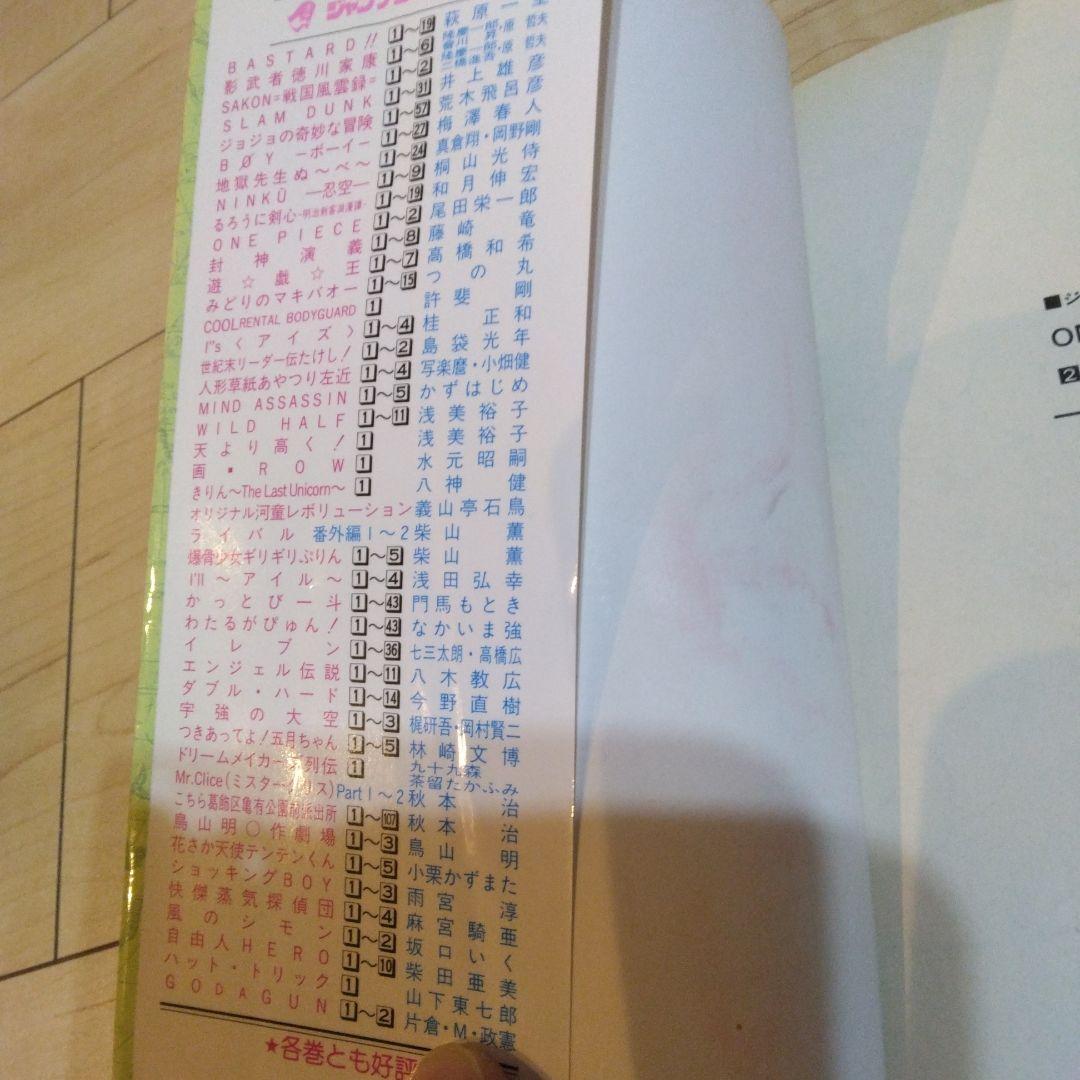 BASTARD!! 1〜19 萩原一至
影武者徳川家康 1〜6
SAKON=戦国風雲録= 1〜2
SLAM DUNK 1〜31 井上雄彦
ジョジョの奇妙な冒険 1〜57 荒木飛呂彦
BØY ―ボーイ― 1〜27 梅澤春人
地獄先生ぬ〜べ〜 1〜24 真倉翔・岡野剛
NINKŪ ―忍空― 1〜9 桐山光侍
るろうに剣心-明治剣客浪漫譚- 1〜19 和月伸宏
ONE PIECE 1〜2 尾田栄一郎
封神演義 1〜8 藤崎竜
遊☆戯☆王 1〜7 高橋和希
みどりのマキバオー 1〜15 つの丸
COOL RENTAL BODYGUARD 1 許斐剛
I"s〈アイズ〉 1〜4 桂正和
世紀末リーダー伝たけし! 1〜2 島袋光年
人形草紙あやつり左近 1〜4 写楽麿・小畑健
MIND ASSASSIN 1〜5 かずはじめ
WILD HALF 1〜11 浅美裕子
天より高く! 1 浅美裕子
画・ROW 1 水元昭嗣
きりん〜The Last Unicorn〜 1 八神健
オリジナル河童レボリューション 義山亭石鳥
ライバル 番外編1〜2 柴山薫
爆骨少女ギリギリぷりん 1〜5 柴山薫
I'll〜アイル〜 1〜4 浅田弘幸
かっとび一斗 1〜43 門馬もとき
わたるがぴゅん! 1〜43 なかいま強
イレブン 1〜36 七三太朗・高橋広
エンジェル伝説 1〜11 八木教広
ダブル・ハード 1〜14 今野直樹
宇強の大空 1〜3 梶研吾・岡村賢二
つきあってよ!五月ちゃん 1〜5 林崎文博
ドリームメイカー 列伝 1 九十九森 茶留たかふみ
Mr.Clice(ミスター・クリス) Part1〜2 秋本治
こちら葛飾区亀有公園前派出所 1〜107 秋本治
鳥山明○作劇場 1〜3 鳥山明
花さか天使テンテンくん 1〜5 小栗かずまた
ショッキングBOY 1〜3 雨宮淳
快傑蒸気探偵団 1〜4 麻宮騎亜
風のシモン 1〜2 坂口いく
自由人HERO 1〜10 柴田亜美
ハット・トリック 1 山下東七郎
GODAGUN 1〜2 片倉・M・政憲
★各巻とも好評
■ジ
2